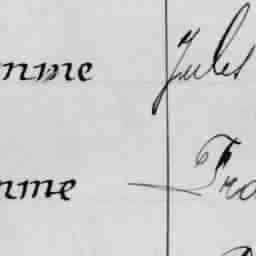 mme Jules
mme Fra